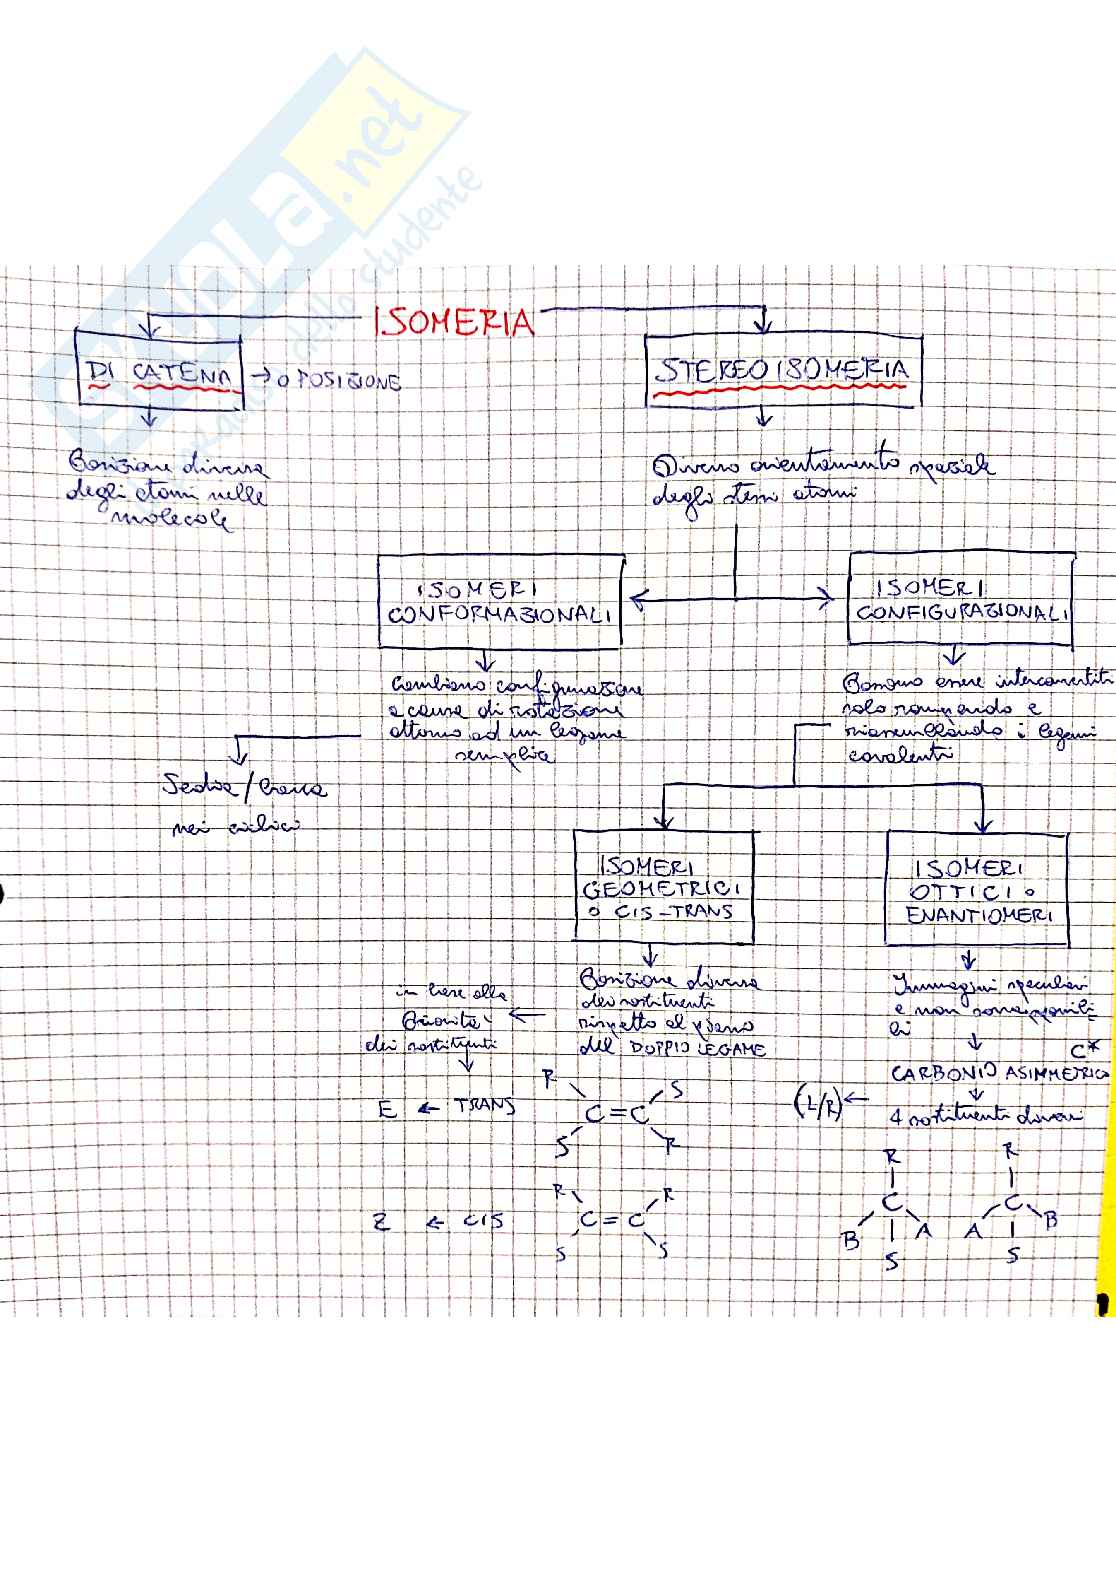 SKUOLA.net
dello studente
ISOMERIA
DI CATENA → O POSIZIONE
STEREOISOMERIA
Posizione diversa
degli atomi nelle
molecole
Diverso orientamento spaziale
degli stessi atomi
ISOMERI
CONFORMAZIONALI
ISOMERI
CONFIGURAZIONALI
Cambiano configurazione
a causa di rotazione
attorno ad un legame
semplice
Possono essere intercovertiti
solo rompendo e
riassemblando i legami
covalenti
Sedia/barca
nei ciclici
ISOMERI
GEOMETRICI
o CIS-TRANS
ISOMERI
OTTICI o
ENANTIOMERI
Posizione diversa
dei sostituenti
rispetto al piano
del DOPPIO LEGAME
in base alla
Priorità
dei sostituenti
Immagini speculari
e non sovrapponibi
li
C*
CARBONIO ASIMMETRICO
(L/R) ← 4 sostituenti diversi
E ← TRANS
R S
C=C
S R
Z ← CIS
R R
C=C
S S
R
C
B A
S
R
C
A B
S
1